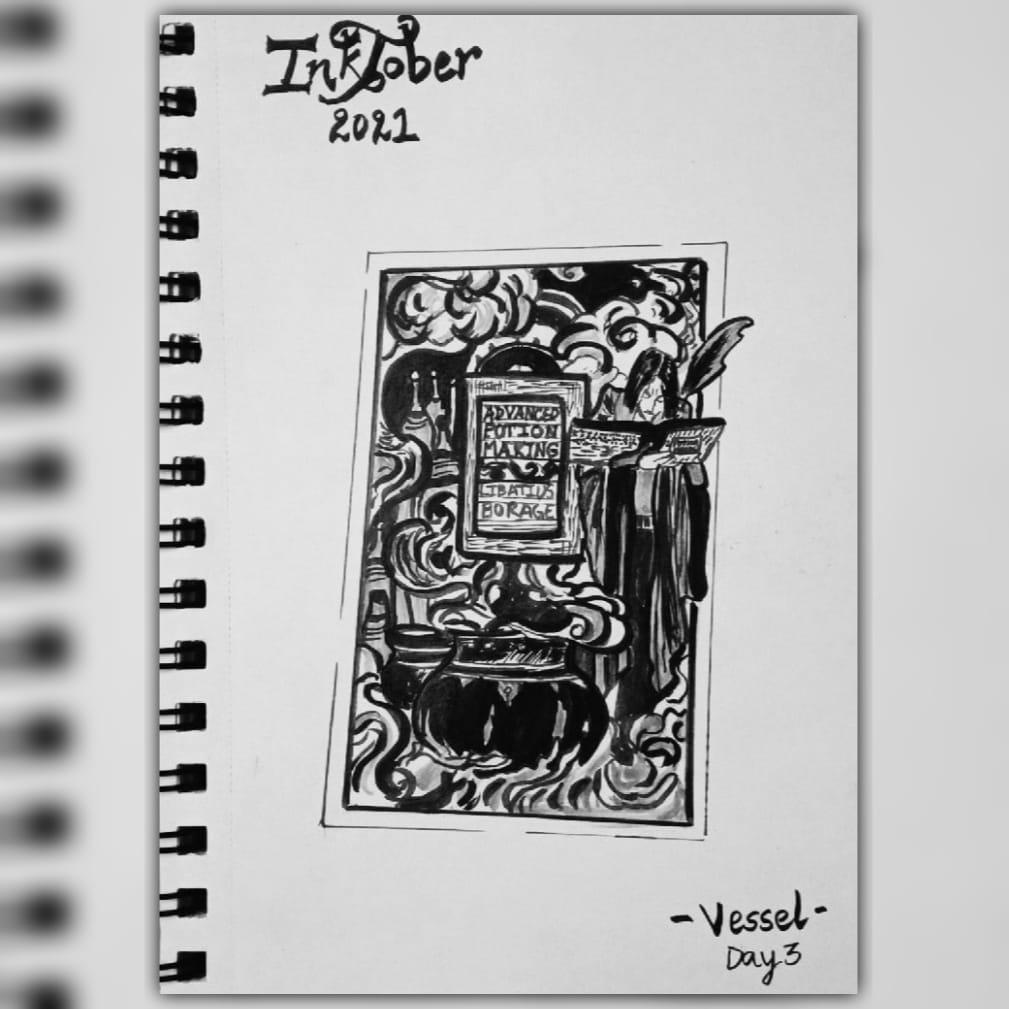 InkTober
2021
ADVANCED
POTION
MAKING
LIBATIUS
BORAGE
-Vessel-
Day 3